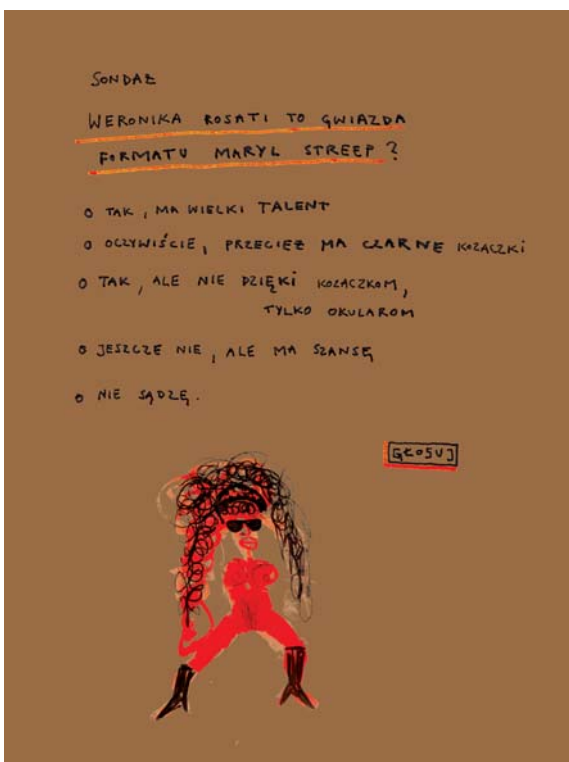 SONDAŻ
WERONIKA ROSATI TO GWIAZDA
FORMATU MARYL STREEP?
o TAK, MA WIELKI TALENT
o OCZYWIŚCIE, PRZECIEŻ MA CZARNE KOZACZKI
o TAK, ALE NIE DZIĘKI KOZACZKOM,
TYLKO OKULAROM
o JESZCZE NIE, ALE MA SZANSĘ
o NIE SĄDZĘ.
GŁOSUJ